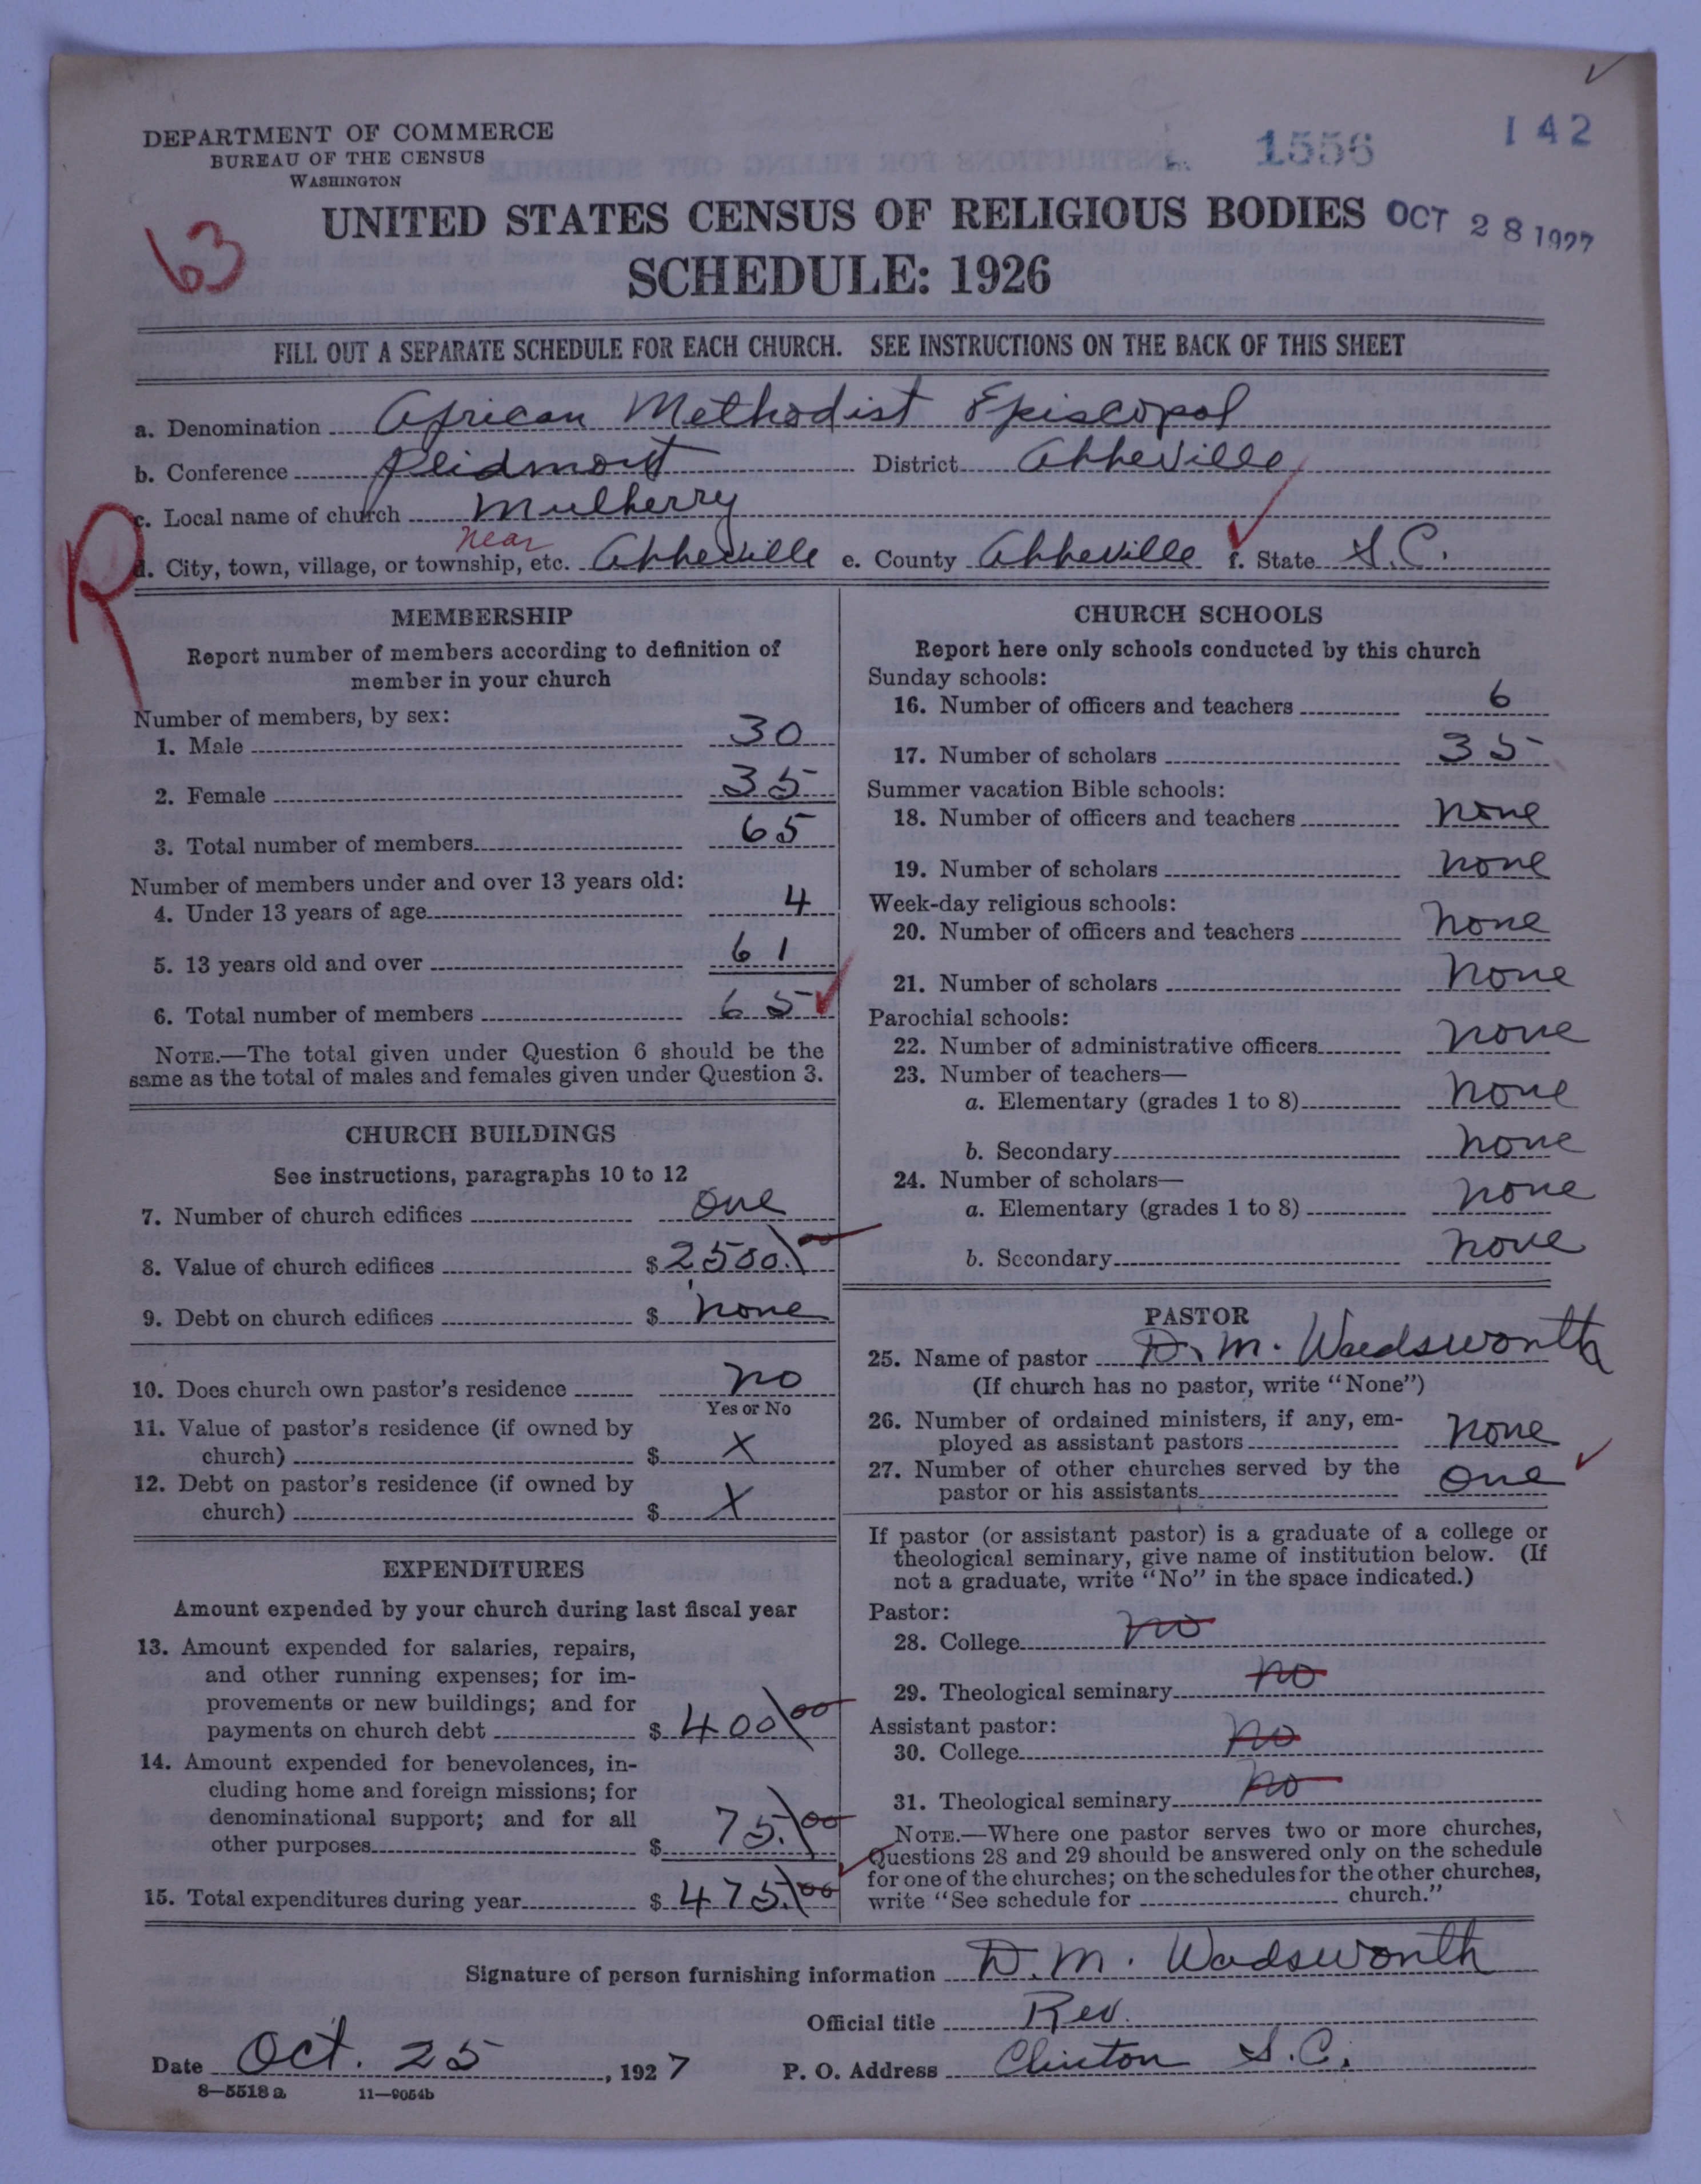 ✓
DEPARTMENT OF COMMERCE
BUREAU OF THE CENSUS
WASHINGTON
1556
142
UNITED STATES CENSUS OF RELIGIOUS BODIES
OCT 28 1927
63
SCHEDULE: 1926
FILL OUT A SEPARATE SCHEDULE FOR EACH CHURCH. SEE INSTRUCTIONS ON THE BACK OF THIS SHEET
a. Denomination African Methodist Episcopal
b. Conference Peidmont District Abbeville
c. Local name of church Mulberry
R
near
d. City, town, village, or township, etc. Abbeville e. County Abbeville f. State S.C.
MEMBERSHIP
Report number of members according to definition of
member in your church
Number of members, by sex:
1. Male 30
2. Female 35
3. Total number of members 65
Number of members under and over 13 years old:
4. Under 13 years of age 4
5. 13 years old and over 61
6. Total number of members 65 ✓
NOTE.—The total given under Question 6 should be the
same as the total of males and females given under Question 3.
CHURCH BUILDINGS
See instructions, paragraphs 10 to 12
7. Number of church edifices one
8. Value of church edifices $ 2500.00
9. Debt on church edifices $ none
10. Does church own pastor's residence no
Yes or No
11. Value of pastor's residence (if owned by
church) $ X
12. Debt on pastor's residence (if owned by
church) $ X
EXPENDITURES
Amount expended by your church during last fiscal year
13. Amount expended for salaries, repairs,
and other running expenses; for im-
provements or new buildings; and for
payments on church debt $ 400 00
14. Amount expended for benevolences, in-
cluding home and foreign missions; for
denominational support; and for all
other purposes $ 75.00
15. Total expenditures during year $ 475.00
CHURCH SCHOOLS
Report here only schools conducted by this church
Sunday schools:
16. Number of officers and teachers 6
17. Number of scholars 35
Summer vacation Bible schools:
18. Number of officers and teachers none
19. Number of scholars none
Week-day religious schools:
20. Number of officers and teachers none
21. Number of scholars none
Parochial schools:
22. Number of administrative officers none
23. Number of teachers—
a. Elementary (grades 1 to 8) none
b. Secondary none
24. Number of scholars—
a. Elementary (grades 1 to 8) none
b. Secondary none
PASTOR
25. Name of pastor D. M. Wadsworth
(If church has no pastor, write "None")
26. Number of ordained ministers, if any, em-
ployed as assistant pastors none
27. Number of other churches served by the
pastor or his assistants one ✓
If pastor (or assistant pastor) is a graduate of a college or
theological seminary, give name of institution below. (If
not a graduate, write "No" in the space indicated.)
Pastor:
28. College no
29. Theological seminary no
Assistant pastor:
30. College no
31. Theological seminary no
NOTE.—Where one pastor serves two or more churches,
Questions 28 and 29 should be answered only on the schedule
for one of the churches; on the schedules for the other churches,
write "See schedule for church."
Signature of person furnishing information D. M. Wadsworth
Official title Rev.
Date Oct. 25, 1927 P. O. Address Clinton S.C.
8—5518a 11—9054b